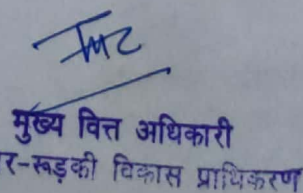 मुख्य वित्त अधिकारी
र-रूड़की विकास प्राधिकरण